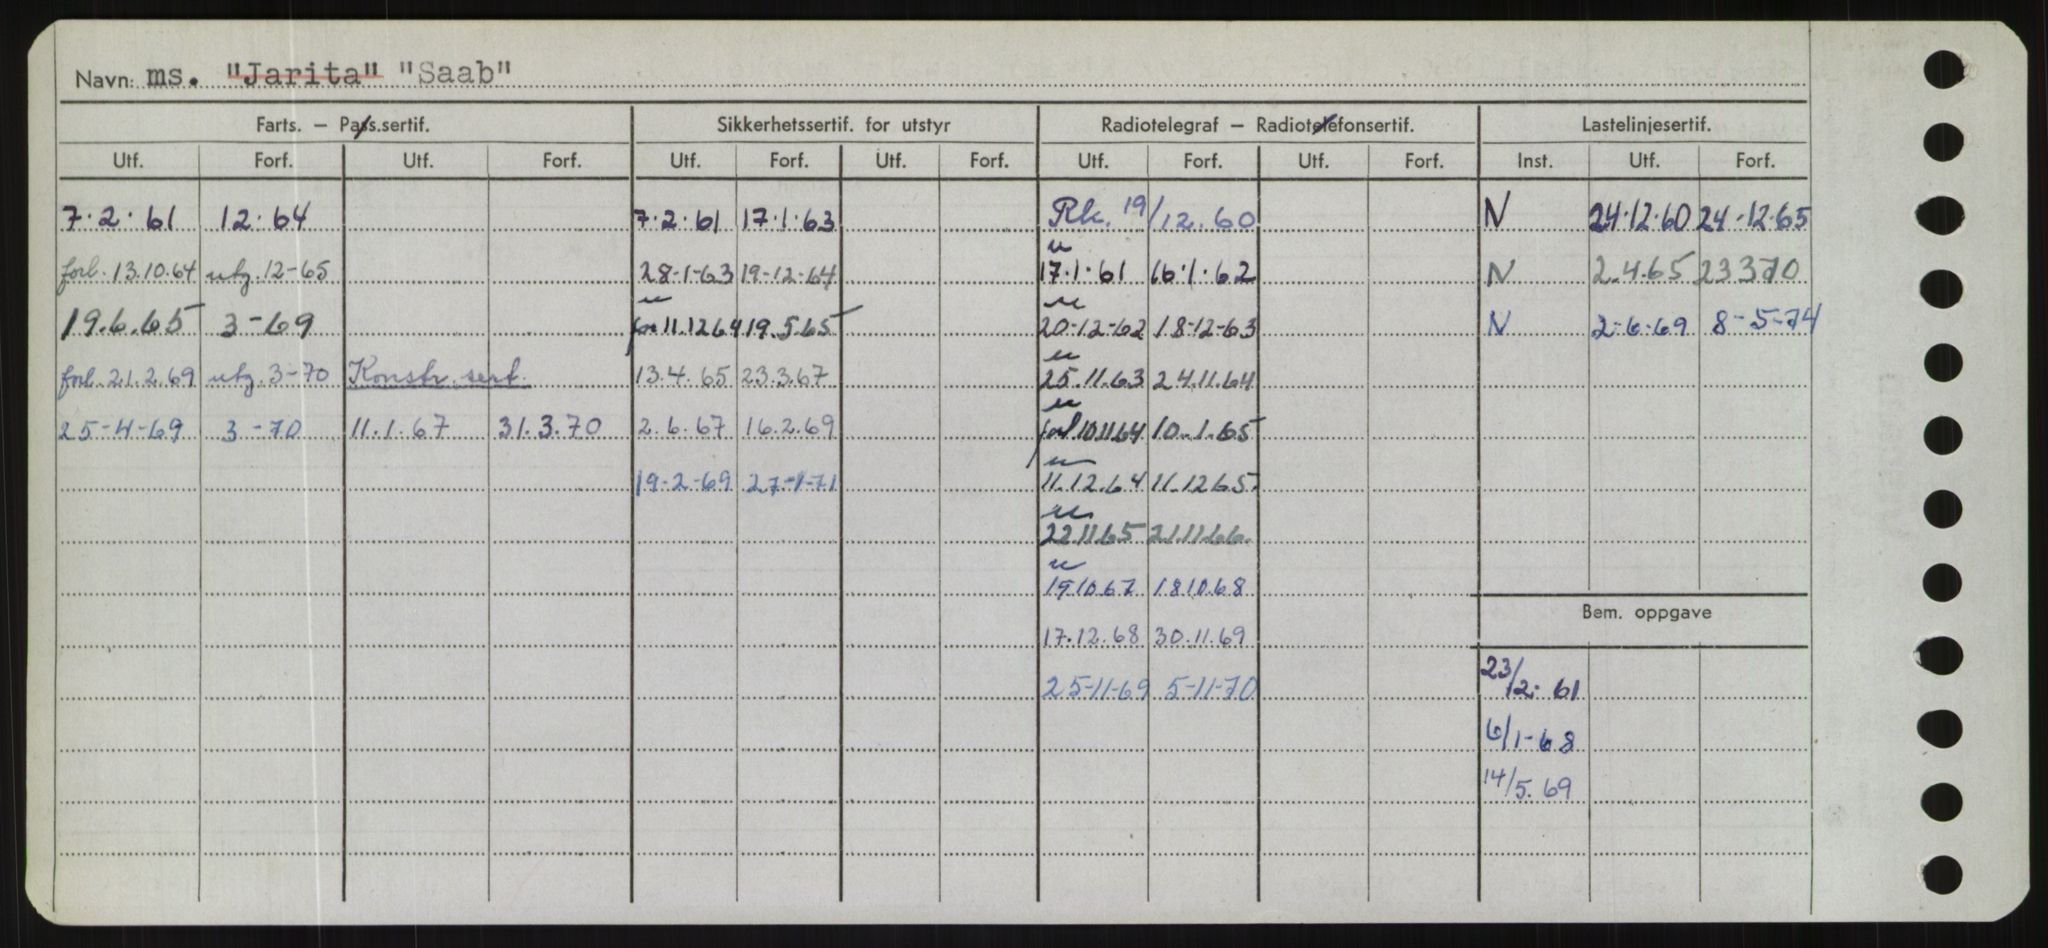 Navn: ms. "Jarita" "Saab"
Farts. – Pass.sertif. Sikkerhetssertif. for utstyr Radiotelegraf – Radiotelefonsertif. Lastelinjesertif.
Utf. Forf. Utf. Forf. Utf. Forf. Utf. Forf. Utf. Forf. Utf. Forf. Inst. Utf. Forf.
7.2.61 12.64 7.2.61 17.1.63 Rk. 19/12.60 N 24.12.60 24-12-65
forl. 13.10.64 utg. 12-65 28-1-63 19-12-64 17.1.61 16.1.62 N 2.4.65 23370
19.6.65 3-69 11.1264 19.5.65 20-12-62 18-12-63 N 2-6-69 8-5-74
forl. 21.2.69 utg. 3-70 Konstr. sert. 13.4.65 23.3.67 25.11.63 24.11.64
25-4-69 3-70 11.1.67 31.3.70 2.6.67 16.2.69 forl 101164 10.1.65
19-2-69 27-1-71 11.12.64 11.1265
221165 21.11.66.
191067 1810.68
Bem. oppgave
17.12.68 30.11.69
23/2.61
25-11-69 5-11-70
6/1-68
14/5.69